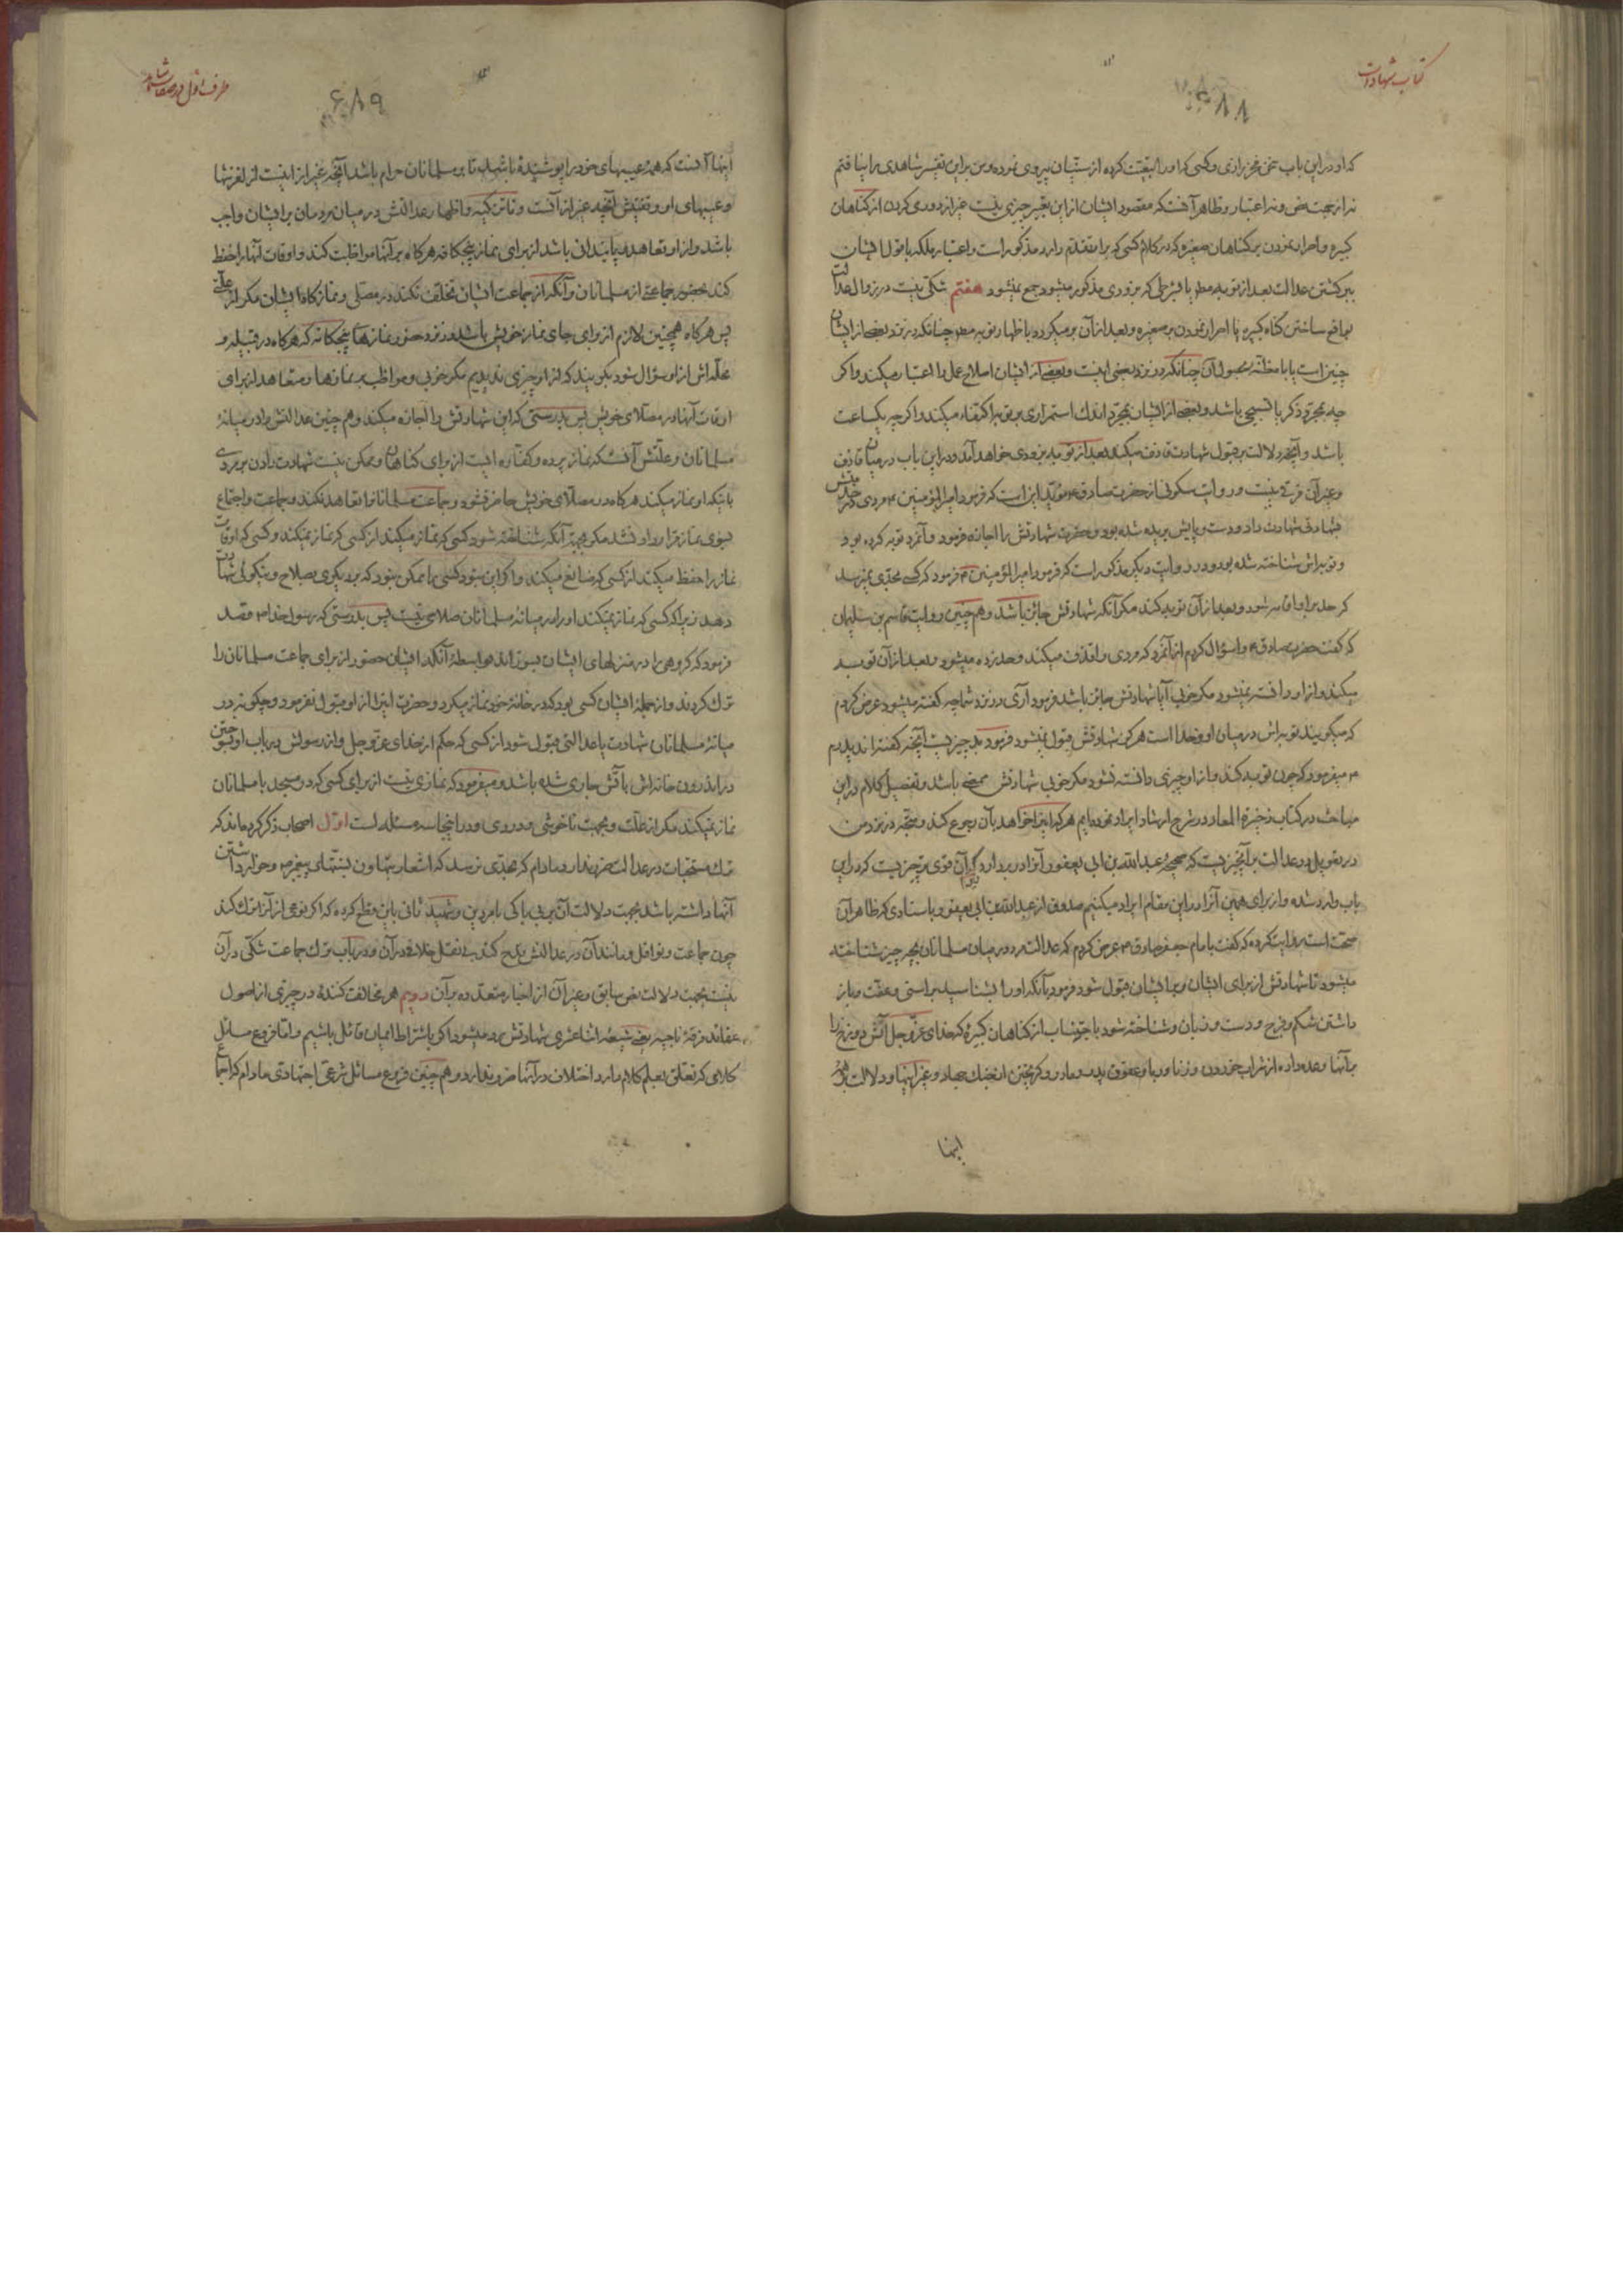 کتاب شهادات
۶۸۸
که او در این باب سخن فخر رازی و کسی که او را تبعیت کرده از سنیان پیروی نموده و من برای این تفسیر شاهدی را نیافتم
نه از جهت نص و نه اعتبار و ظاهر آنست که مقصود ایشان از این تفسیر چیزی نیست غیر از دوری کردن از گناهان
کبیره و اصرار نمودن بر گناهان صغیره که در کلام کسی که بر اقدم دارد مذکور است و اعتبار ملکه با قول ایشان
ببرگشتن عدالت بعد از توبه مطلقا جمع نمیشود هفتم شکی نیست در زوال عدالت
بواقع ساختن گناه کبیره یا اصرار نمودن بر صغیره و بعد از آن بر میگردد باظهار توبه مطلقا چنانکه در نزد بعضی از ایشان
چنین است یا با مظنه بحصول آن چنانکه در نزد بعضی اینست و بعضی از ایشان اصلاح عمل را اعتبار میکنند و اگر
چه بمجرد ذکر یا تسبیحی باشد و بعضی از ایشان بمجرد اندک استمراری بر توبه اکتفاء میکنند و اگر چه یکساعت
باشد و آنچه دلالت بر قبول شهادت قاذف میکند بعد از توبه بزودی خواهد آمد و در این باب در میان قاذف
و غیر آن فرقی نیست و روایت سکونی از حضرت صادق ع مؤید این است که فرمود امیرالمؤمنین ع مردی در خدمتش
شهادتی شهادت داد و دست و پایش بریده شده بود و حضرت شهادتش را اجازه فرمود و آنمرد توبه کرده بود
و توبه اش شناخته شده بود و در روایت دیگر مذکور است که فرمود امیرالمؤمنین ع فرمود که کسی بحدی نمیرسد
که حد بر او اقامه شود و بعد از آن توبه کند مگر آنکه شهادتش جائز باشد و هم چنین روایت قاسم بن سلیمان
که گفت حضرت صادق ع را سؤال کردم از آنمرد که مردی را قذف میکند و حد زده میشود و بعد از آن توبه
میکند و از او دانسته نمیشود مگر خوبی آیا شهادتش جائز باشد فرمود آری در نزد شما چه گفته میشود عرض کردم
که میگویند توبه اش در میان او و خدا است هرگز شهادتش قبول نمیشود فرمود بد چیزیست آنچه گفته اند پدرم
ع میفرمود که چون توبه کند و از او چیزی دانسته نشود مگر خوبی شهادتش ممضی باشد و تفصیل کلام در این
مباحث در کتاب ذخیرة المعاد در شرح ارشاد ایراد نموده ایم هر که این را خواهد بآن رجوع کند و معتبر در نزد من
در تعویل در عدالت بر آنچیزیست که صحیحه عبدالله بن ابی یعفور آنرا در بر دارد آن قوی تر چیزیست که در این
باب وارد شده و از برای همین آنرا در این مقام ایراد میکنیم صدوق از عبدالله بن ابی یعفور باسنادی که ظاهر آن
صحت است روایت کرده که گفت بامام جعفر صادق ع عرض کردم که عدالت مرد در میان مسلمانان بچه چیز شناخته
میشود تا شهادتش از برای ایشان و بر ایشان قبول شود فرمود بآنکه او را بشناسید براستی و عفت و باز
داشتن شکم و فرج و دست و زبان و شناخته شود باجتناب از گناهان کبیره که خدای عز و جل آتش دوزخ را
بر آنها وعده داده از شراب خوردن و زنا و ربا و عقوق پدر و مادر و گریختن از جنگ جهاد و غیر اینها و دلالت بر همه
اینها
طرف اول در صفات شاهد
۶۸۹
اینها آنست که همه عیبهای خود را پوشیده باشد تا بر مسلمانان حرام باشد آنچه غیر از اینست از لغزشها
و عیبهای او و تفتیش آنچه غیر از آنست و تزکیه و اظهار عدالتش در میان مردمان بر ایشان واجب
باشد و از او تعاهد باشد از برای نماز پنجگانه هرگاه بر آنها مواظبت کند و اوقات آنها را حفظ
کند بحضور جماعتی از مسلمانان و آنکه از جماعت ایشان تخلف نکند در مصلی و نماز گاه ایشان مگر از علتی
پس هرگاه همچنین لازم از برای جای نماز خویش باشد در نزد حضور نمازهای پنجگانه که هرگاه در قبیله و
محله اش از او سؤال شود بگویند که از او چیزی ندیدیم مگر خوبی و مواظب بر نمازها و متعاهد از برای
اوقات آنها در مصلای خویش پس بدرستی که این شهادتش را اجازه میکند و هم چنین عدالتش را در میانه
مسلمانان و علتش آنست که نماز پرده و کفاره ایست از برای گناهان و ممکن نیست شهادت دادن بر مردی
باینکه او نماز میکند هرگاه در مصلای خویش حاضر نشود و جماعت مسلمانان را تعاهد نکند و جماعت و اجتماع
بسوی نماز قرار داده نشد مگر بجهة آنکه شناخته شود کسی که نماز میکند از کسی که نماز نمیکند و کسی که اوقات
نماز را حفظ میکند از کسی که ضایع میکند و اگر این نبود کسی را ممکن نبود که بر دیگری بصلاح و نیکوئی شهادت
دهد زیرا که کسی که نماز نمیکند او را در میانه مسلمانان صلاحی نیست پس بدرستی که رسول خدا ص قصد
فرمود که گروهی را در منزلهای ایشان بسوزاند بواسطه آنکه ایشان حضور از برای جماعت مسلمانان را
ترک کردند و از جمله ایشان کسی بود که در خانه خود نماز میکرد و حضرت این را از او قبول نفرمود و چگونه در
میانه مسلمانان شهادت یا عدالتی قبول شود از کسی که حکم از خدای عز و جل و از رسولش در باب او بسوختن
در اندرون خانه اش بآتش جاری شده باشد و میفرمود که نمازی نیست از برای کسی که در مسجد با مسلمانان
نماز نمیکند مگر از علت و بجهت ناخوشی و دوری و در اینجا سه مسئله است اول اصحاب ذکر کرده اند که
ترک مستحبات در عدالت ضرر ندارد مادام که بحدی نرسد که اشعار بتهاون بسنتهای پیغمبر ص و خوار داشتن
آنها داشته باشد بجهت دلالت آن بر بی باکی بامر دین و شهید ثانی باین قطع کرده که اگر نوعی از آنرا ترک کند
چون جماعت و نوافل و مانند آن در عدالتش قدح کند بی نقل خلافی در آن و در باب ترک جماعت شکی در آن
نیست بجهت دلالت نص سابق و غیر آن از اخبار متعدده بر آن دویم هر مخالفت کننده در چیزی از اصول
عقائد فرقه ناجیه یعنی شیعه اثنا عشری شهادتش رد میشود اگر باشتراط ایمان قائل باشیم و اما فروع مسائل
کلامی که تعلق بعلم کلام دارد اختلاف در آنها ضرر ندارد و هم چنین فروع مسائل شرعی اجتهادی مادام که اجماع